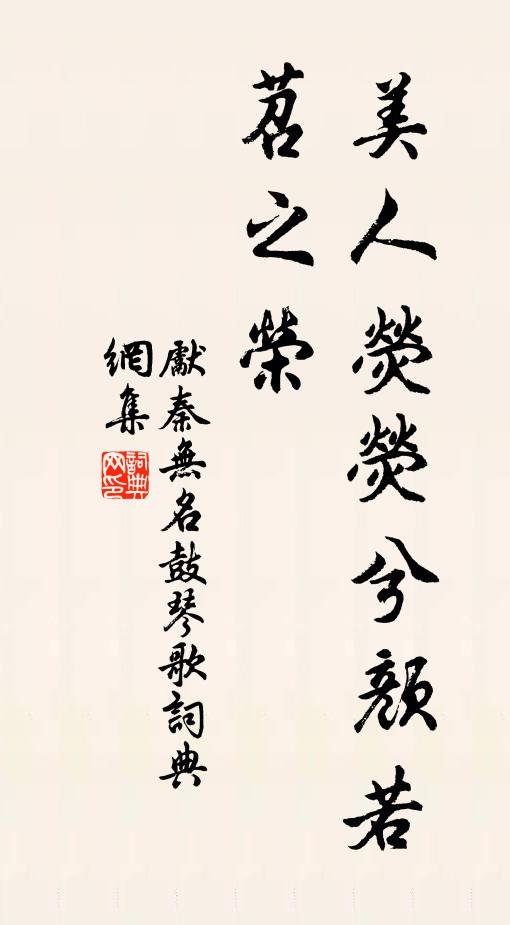 美人熒熒兮顏若
苕之榮
獻秦無名鼓琴歌詞典
網集
詞典網印